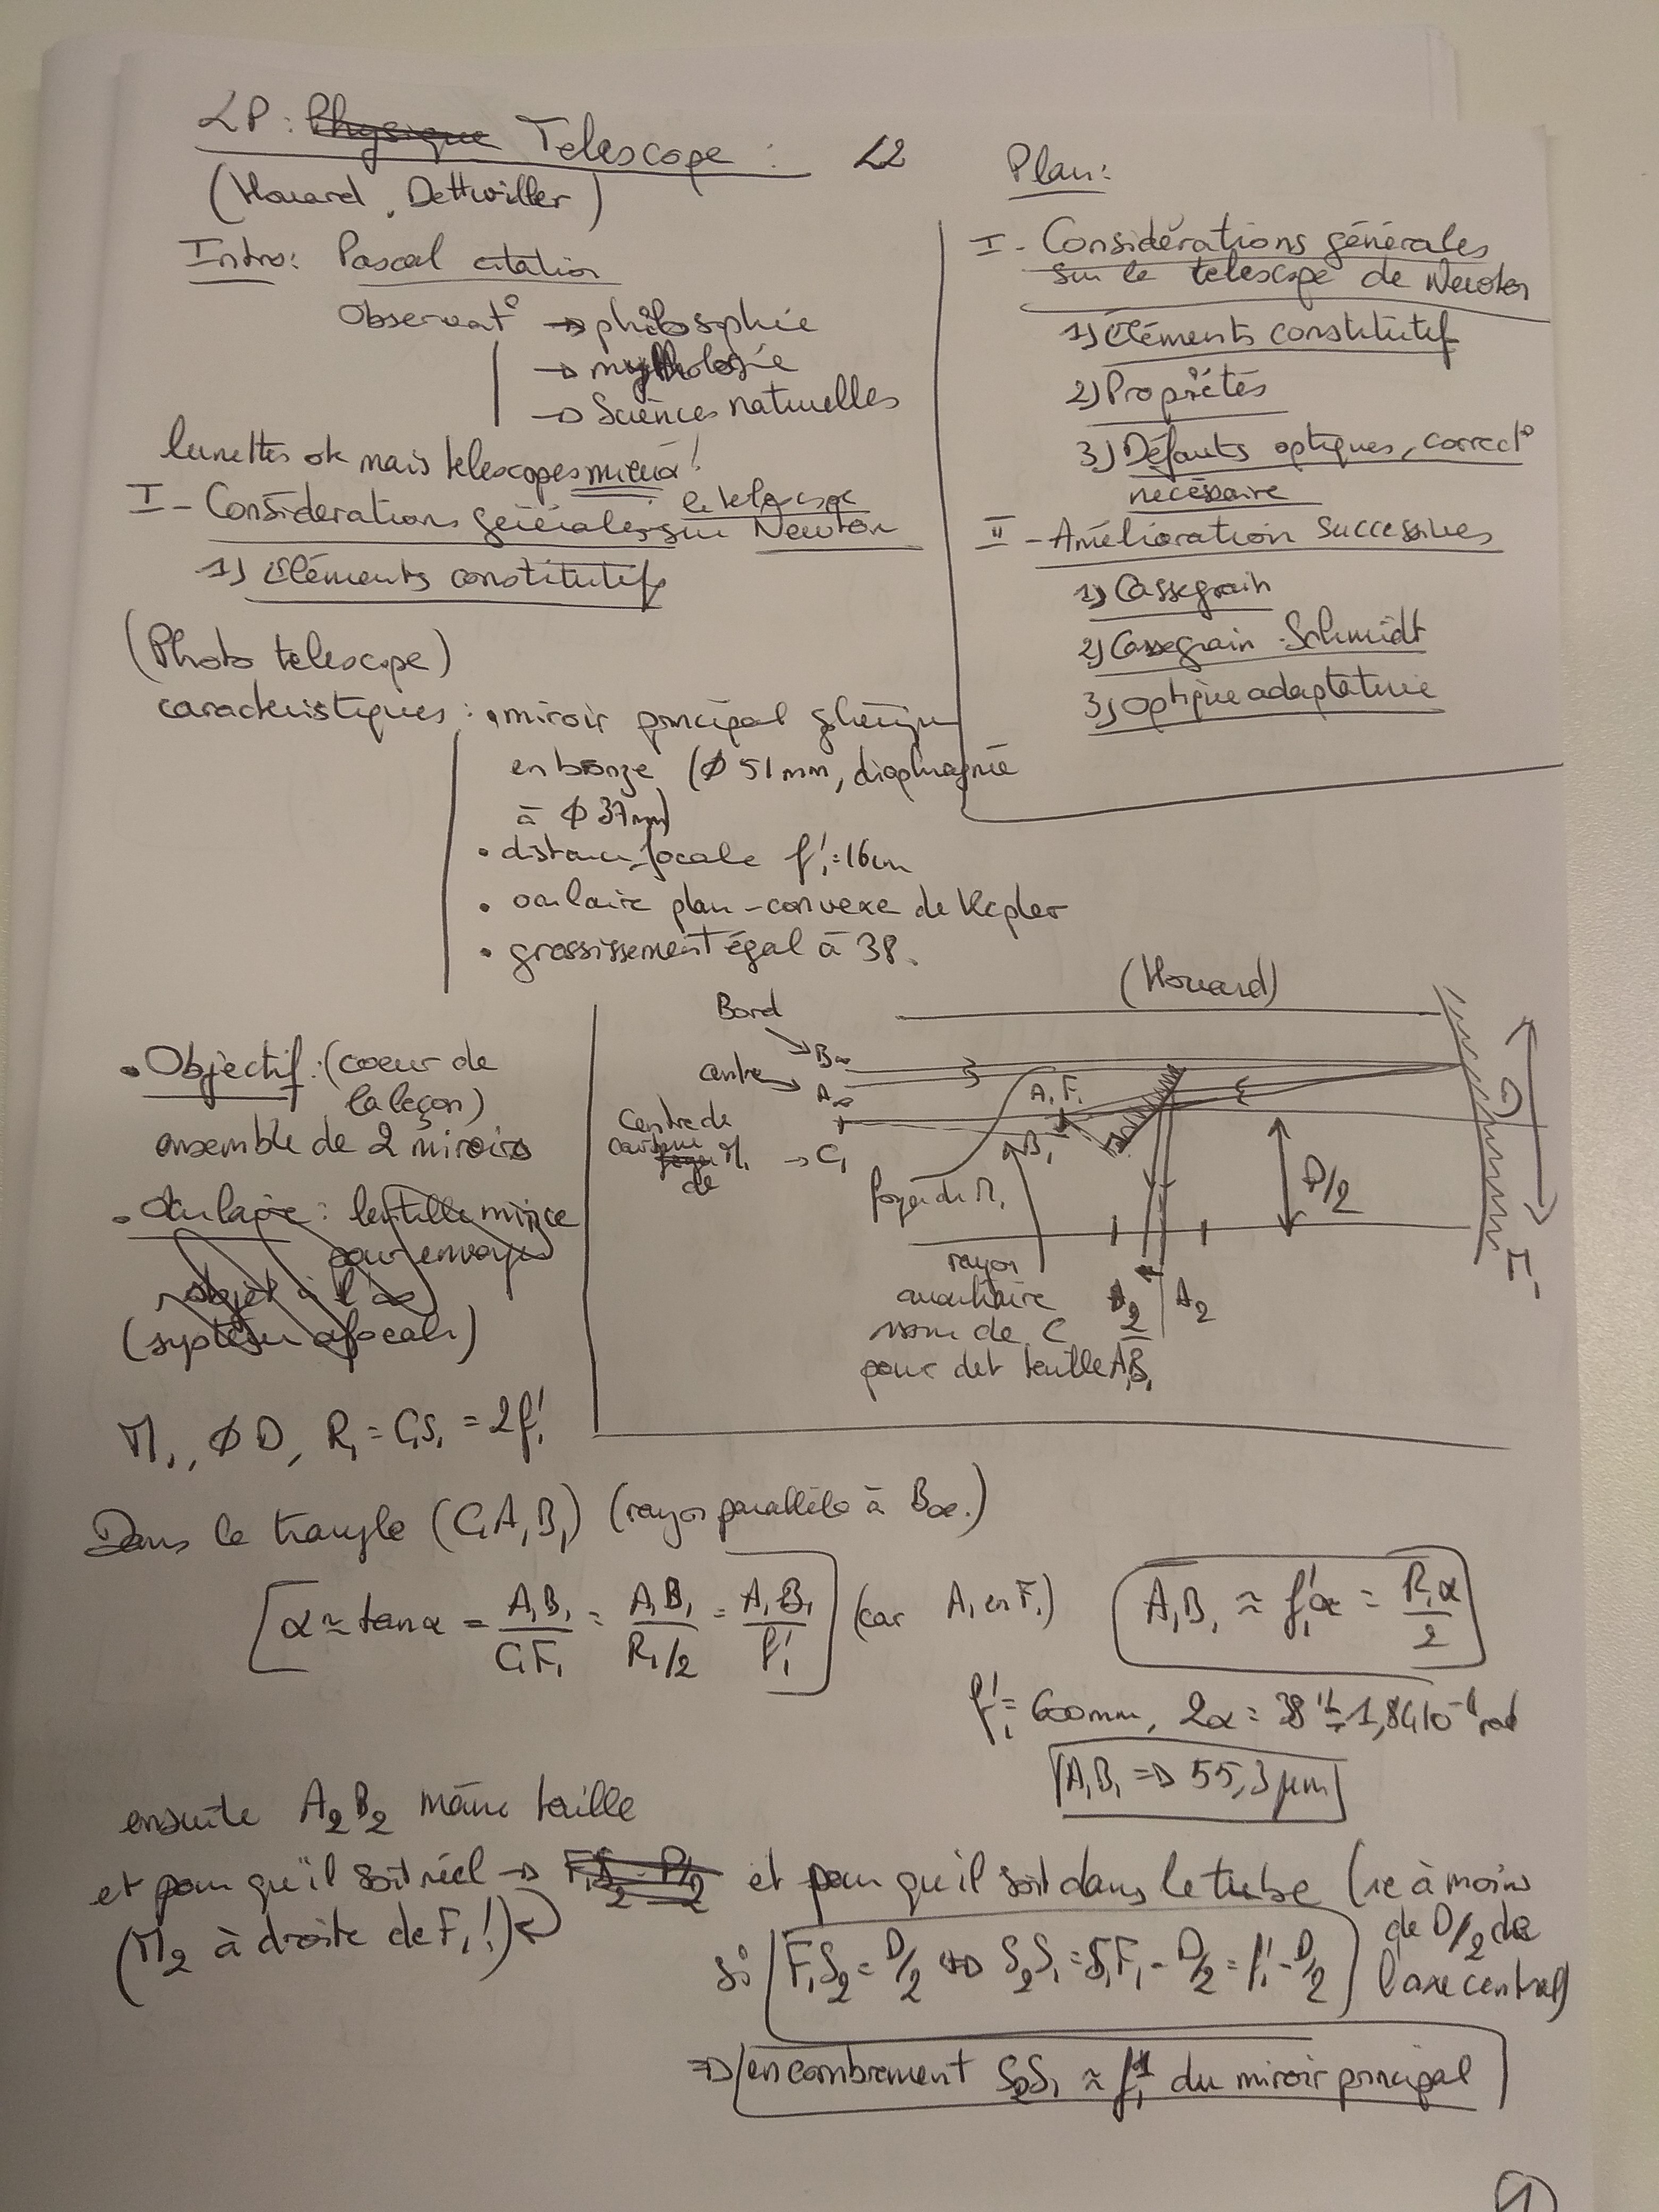 LP : Physique Telescope : L2
(Houard, Dettwiller)
Intro : Pascal citation
Observat° → philosophie
→ mythologie
→ Sciences naturelles
lunettes ok mais telescopes mieux !
I - Considerations générales sur le telescope Newton
1) Eléments constitutifs
(Photo telescope)
caracteristiques : • miroir principal sphérique
en bronze (Ø 51 mm, diaphragmé
à Ø 37mm)
• distance focale f'₁ = 16 cm
• oculaire plan-convexe de Kepler
• grossissement égal à 38.
Plan :
I - Considérations générales
sur le telescope de Newton
1) Eléments constitutifs
2) Propriétés
3) Défauts optiques, correct°
nécessaire
II - Amélioration successives
1) Cassegrain
2) Cassegrain-Schmidt
3) Optique adaptative
• Objectif : (coeur de
la leçon)
ensemble de 2 miroirs
• Oculaire : lentille mince
pour envoyer
objet à l'∞
(système afocal)
(Houard)
Bord
B∞
centre
A∞
Centre de
courbure
de
M₁ → C₁
A₁ F₁
B₁
foyer de M₁
D/2
D
M₁
rayon
auxiliaire
de C
pour det taille A₁B₁
B₂
A₂
M₁, Ø D, R₁ = C₁S₁ = 2f'₁
Dans le triangle (C₁A₁B₁) (rayon parallèle à B∞)
α ≃ tanα = A₁B₁/C₁F₁ = A₁B₁/(R₁/2) = A₁B₁/f'₁ (car A₁ en F₁) A₁B₁ ≈ f'₁α = R₁α/2
f'₁ = 600mm, 2α = 38'' = 1,84 10⁻⁴ rad
A₁B₁ ⇒ 55,3 μm
ensuite A₂B₂ même taille
et pour qu'il soit réel → F₁S₂ = D/2 et pour qu'il soit dans le tube (ie à moins
de D/2 de
l'axe central)
(M₂ à droite de F₁ !)
si F₁S₂ = D/2 ⇔ S₂S₁ = S₁F₁ - D/2 = f'₁ - D/2
⇒ encombrement S₂S₁ ≈ f'₁ du miroir principal
1